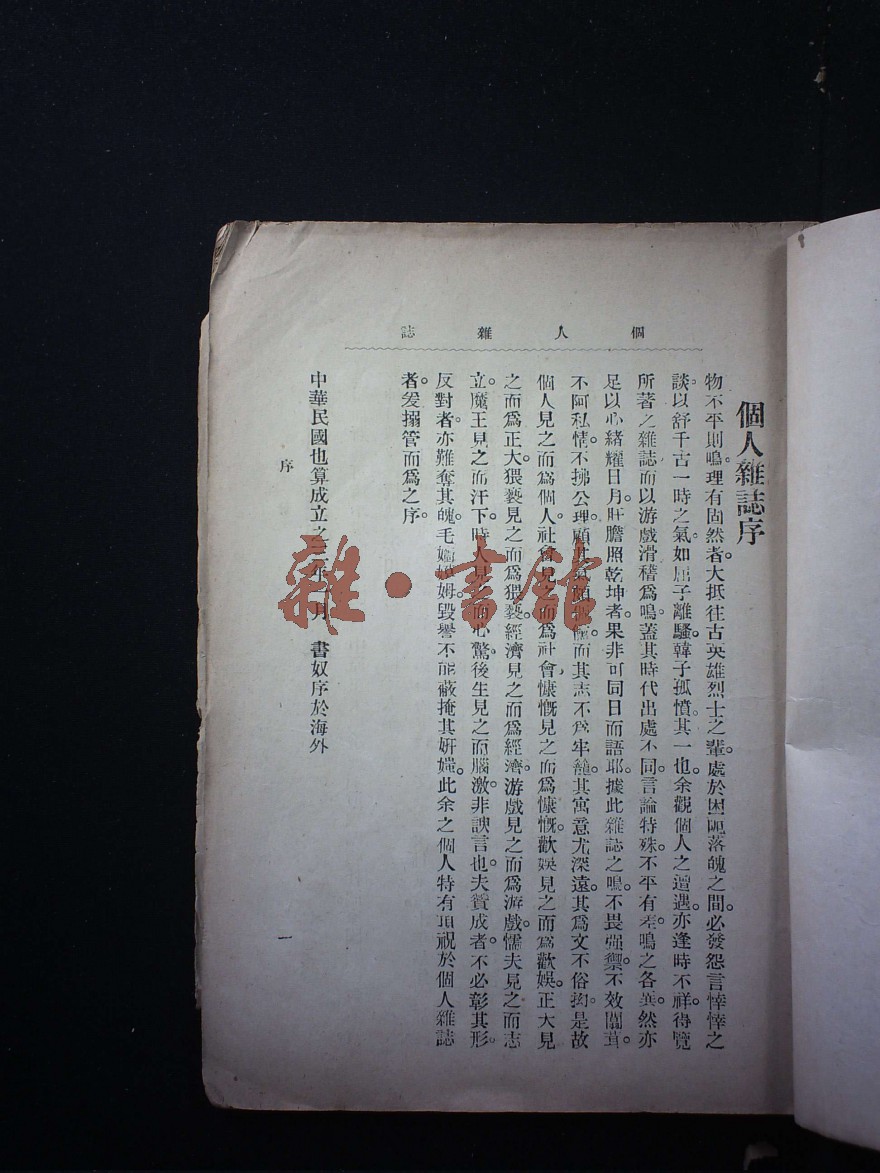 個人雜誌
個人雜誌序
物不平則鳴。理有固然者。大抵往古英雄烈士之輩。處於困阨落魄之間。必發怨言悻悻之
談。以舒千古一時之氣。如屈子離騷。韓子孤憤。其一也。余觀個人之遭遇。亦逢時不祥。得覽
所著之雜誌。而以游戲滑稽爲鳴。蓋其時代出處不同。言論特殊。不平有差。鳴之各異。然亦
足以心緒耀日月。肝膽照乾坤者。果非可同日而語耶。據此雜誌之鳴。不畏强禦。不效闒茸。
不阿私情。不拂公理。顧其氣頗 而其志不爲牢籠。其寓意尤深遠。其爲文不俗拘。是故
個人見之而爲個人。社會見之而爲社會。慷慨見之而爲慷慨。歡娛見之而爲歡娛。正大見
之而爲正大。猥褻見之而爲猥褻。經濟見之而爲經濟。游戲見之而爲游戲。懦夫見之而志
立。魔王見之而汗下。時人見之而心驚。後生見之而腦激。非諛言也。夫贊成者。不必彰其形。
反對者。亦難奪其魄。毛嬙嫫姆。毀譽不能蔽掩其妍媸。此余之個人特有頂祝於個人雜誌
者。爰搦管而爲之序。
中華民國也算成立之 年 月　書奴序於海外
序
一
雜·書館